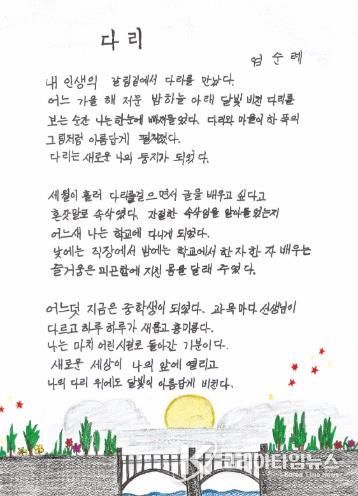 다리
엄순례
내 인생의 갈림길에서 다리를 만났다.
어느 가을 해 저문 밤하늘 아래 달빛 비친 다리를
보는 순간 나는 한눈에 빠져들었다. 다리와 마을이 한 폭의
그림처럼 아름답게 펼쳐졌다.
다리는 새로운 나의 둥지가 되었다.
세월이 흘러 다리를 걸으면서 글을 배우고 싶다고
혼잣말로 속삭였다. 간절한 속삭임을 알아들었는지
어느새 나는 학교에 다니게 되었다.
낮에는 직장에서 밤에는 학교에서 한 자 한 자 배우는
즐거움은 피곤함에 지친 몸을 달래 주었다.
어느덧 지금은 중학생이 되었다. 과목마다 선생님이
다르고 하루 하루가 새롭고 흥미롭다.
나는 마치 어린 시절로 돌아간 기분이다.
새로운 세상이 나의 앞에 열리고
나의 다리 위에도 달빛이 아름답게 비친다.
코리아타임뉴스
Korea Time News